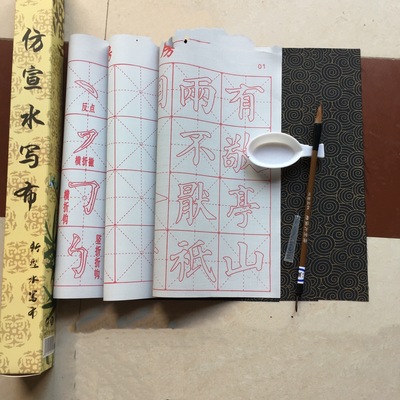 仿宣水写布
新型水写布
反点
横折撇
横折钩
竖折折钩
01
兩不厭祗
有敬亭山